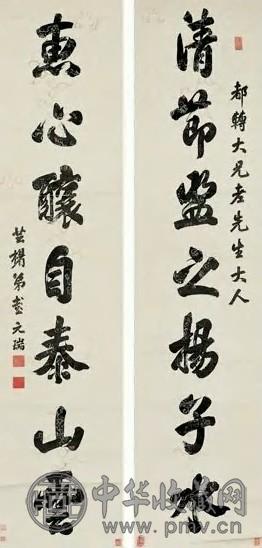 都轉大兄老先生大人
清節監之揚子水
惠心釀自泰山雲
芸楣弟彭元瑞
中华收藏网
www.pmv.cn